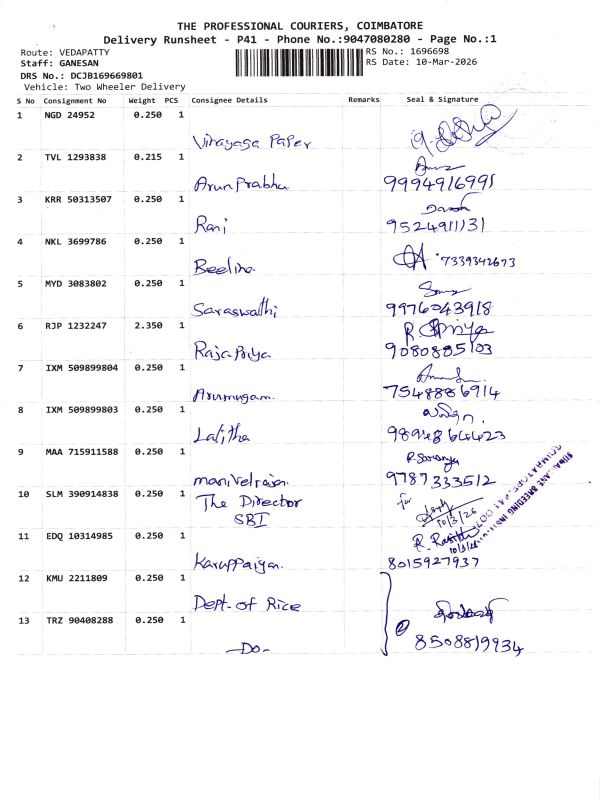 THE PROFESSIONAL COURIERS, COIMBATORE
Delivery Runsheet - P41 - Phone No.:9047080280 - Page No.:1
Route: VEDAPATTY
RS No.: 1696698
Staff: GANESAN
RS Date: 10-Mar-2026
DRS No.: DCJB169669801
Vehicle: Two Wheeler Delivery
S No Consignment No Weight PCS Consignee Details Remarks Seal & Signature
1 NGD 24952 0.250 1
Vinayaga Paper
2 TVL 1293838 0.215 1
Arun Prabhu 9994916991
3 KRR 50313507 0.250 1
Rani 9524911131
4 NKL 3699786 0.250 1
Beeline. 7339342673
5 MYD 3083802 0.250 1
Saraswathi 9976043918
6 RJP 1232247 2.350 1 R.
Raja Priya 9080885103
7 IXM 509899804 0.250 1
Arumugam. 7548886914
8 IXM 509899803 0.250 1
Lalitha 9894864423
9 MAA 715911588 0.250 1 P. Saranya
manivelrajan 9787333512
10 SLM 390914838 0.250 1 The Director for
SBI 10/3/26
11 EDQ 10314985 0.250 1 R.
10/3/26
Karuppaiyan. 8015927937
12 KMU 2211809 0.250 1
Dept. of Rice
13 TRZ 90408288 0.250 1
-Do- 8508819934